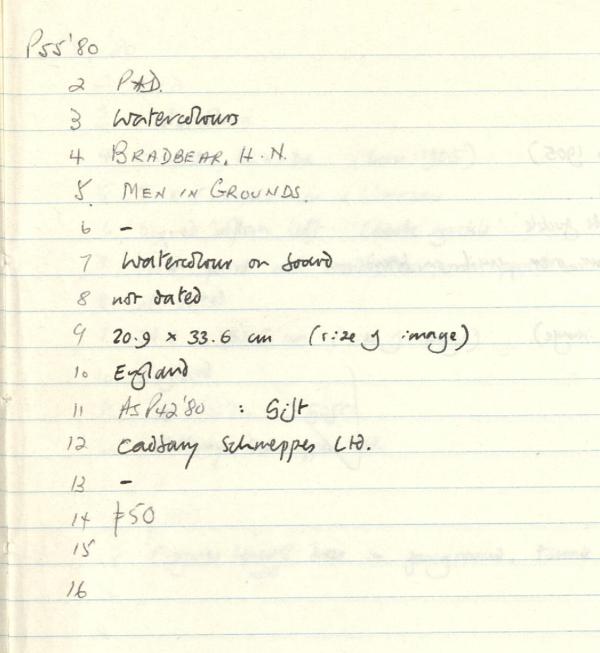 P55'80
2 PAD.
3 Watercolours
4 BRADBEAR, H.N.
5. MEN IN GROUNDS.
6 -
7 Watercolour on board
8 not dated
9 20.9 x 33.6 cm (size of image)
10 England
11 As P42'80 : Gift
12 Cadbury Schweppes Ltd.
13 -
14 £50
15
16